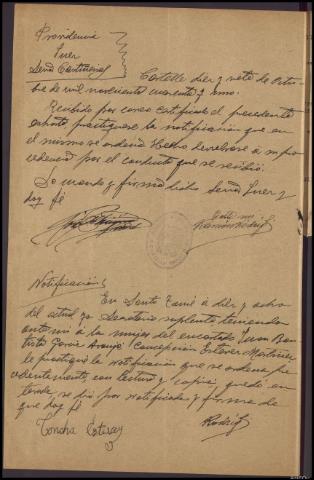 Providencia
Juez
Señor
Castelle diez y siete de Octu-
bre de mil novecientos cuarenta y uno.
Recibido por correo certificado el precedente
exhorto practiquese la notificación que en
el mismo se ordena Hecho devuelvase a su pro-
cedencia por el conducto que se recibió.
Lo mando y firma dicho Señor Juez y
doy fé
Ante mi
Notificación
En Santo Tomé a diez y ocho
del actual yo Secretario suplente teniendo
ante mi a la mujer del encartado Juan Bau-
tista García Araujo Concepción Estevez Martinez
le practiqué la notificación que se ordena pre-
cedentemente, con lectura y copia, quedó en-
terada, se dio por notificada y firma de
que doy fé
Concha Estevez
Rodríg